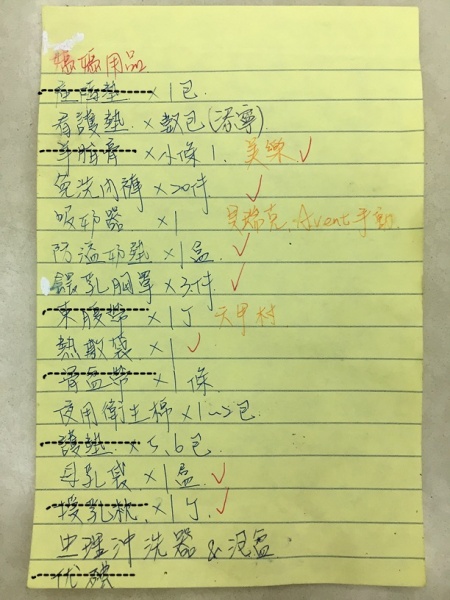 媽媽用品
墊 ×1包
看護墊 ×數包(添寧)
羊脂膏 ×小條1. 美樂 ✓
免洗內褲 ×20件 ✓
吸奶器 ×1 貝瑞克, Avent手動
防溢奶墊 ×1盒 ✓
餵乳胸罩 ×3件 ✓
束腹帶 ×1丁 天甲村
熱敷袋 ×1 ✓
骨盆帶 ×1條
使用衛生棉 ×1~2包
護墊 ×5.6包
母乳袋 ×1盒 ✓
授乳枕 ×1丁. ✓
生理沖洗器 & 盆
优碘